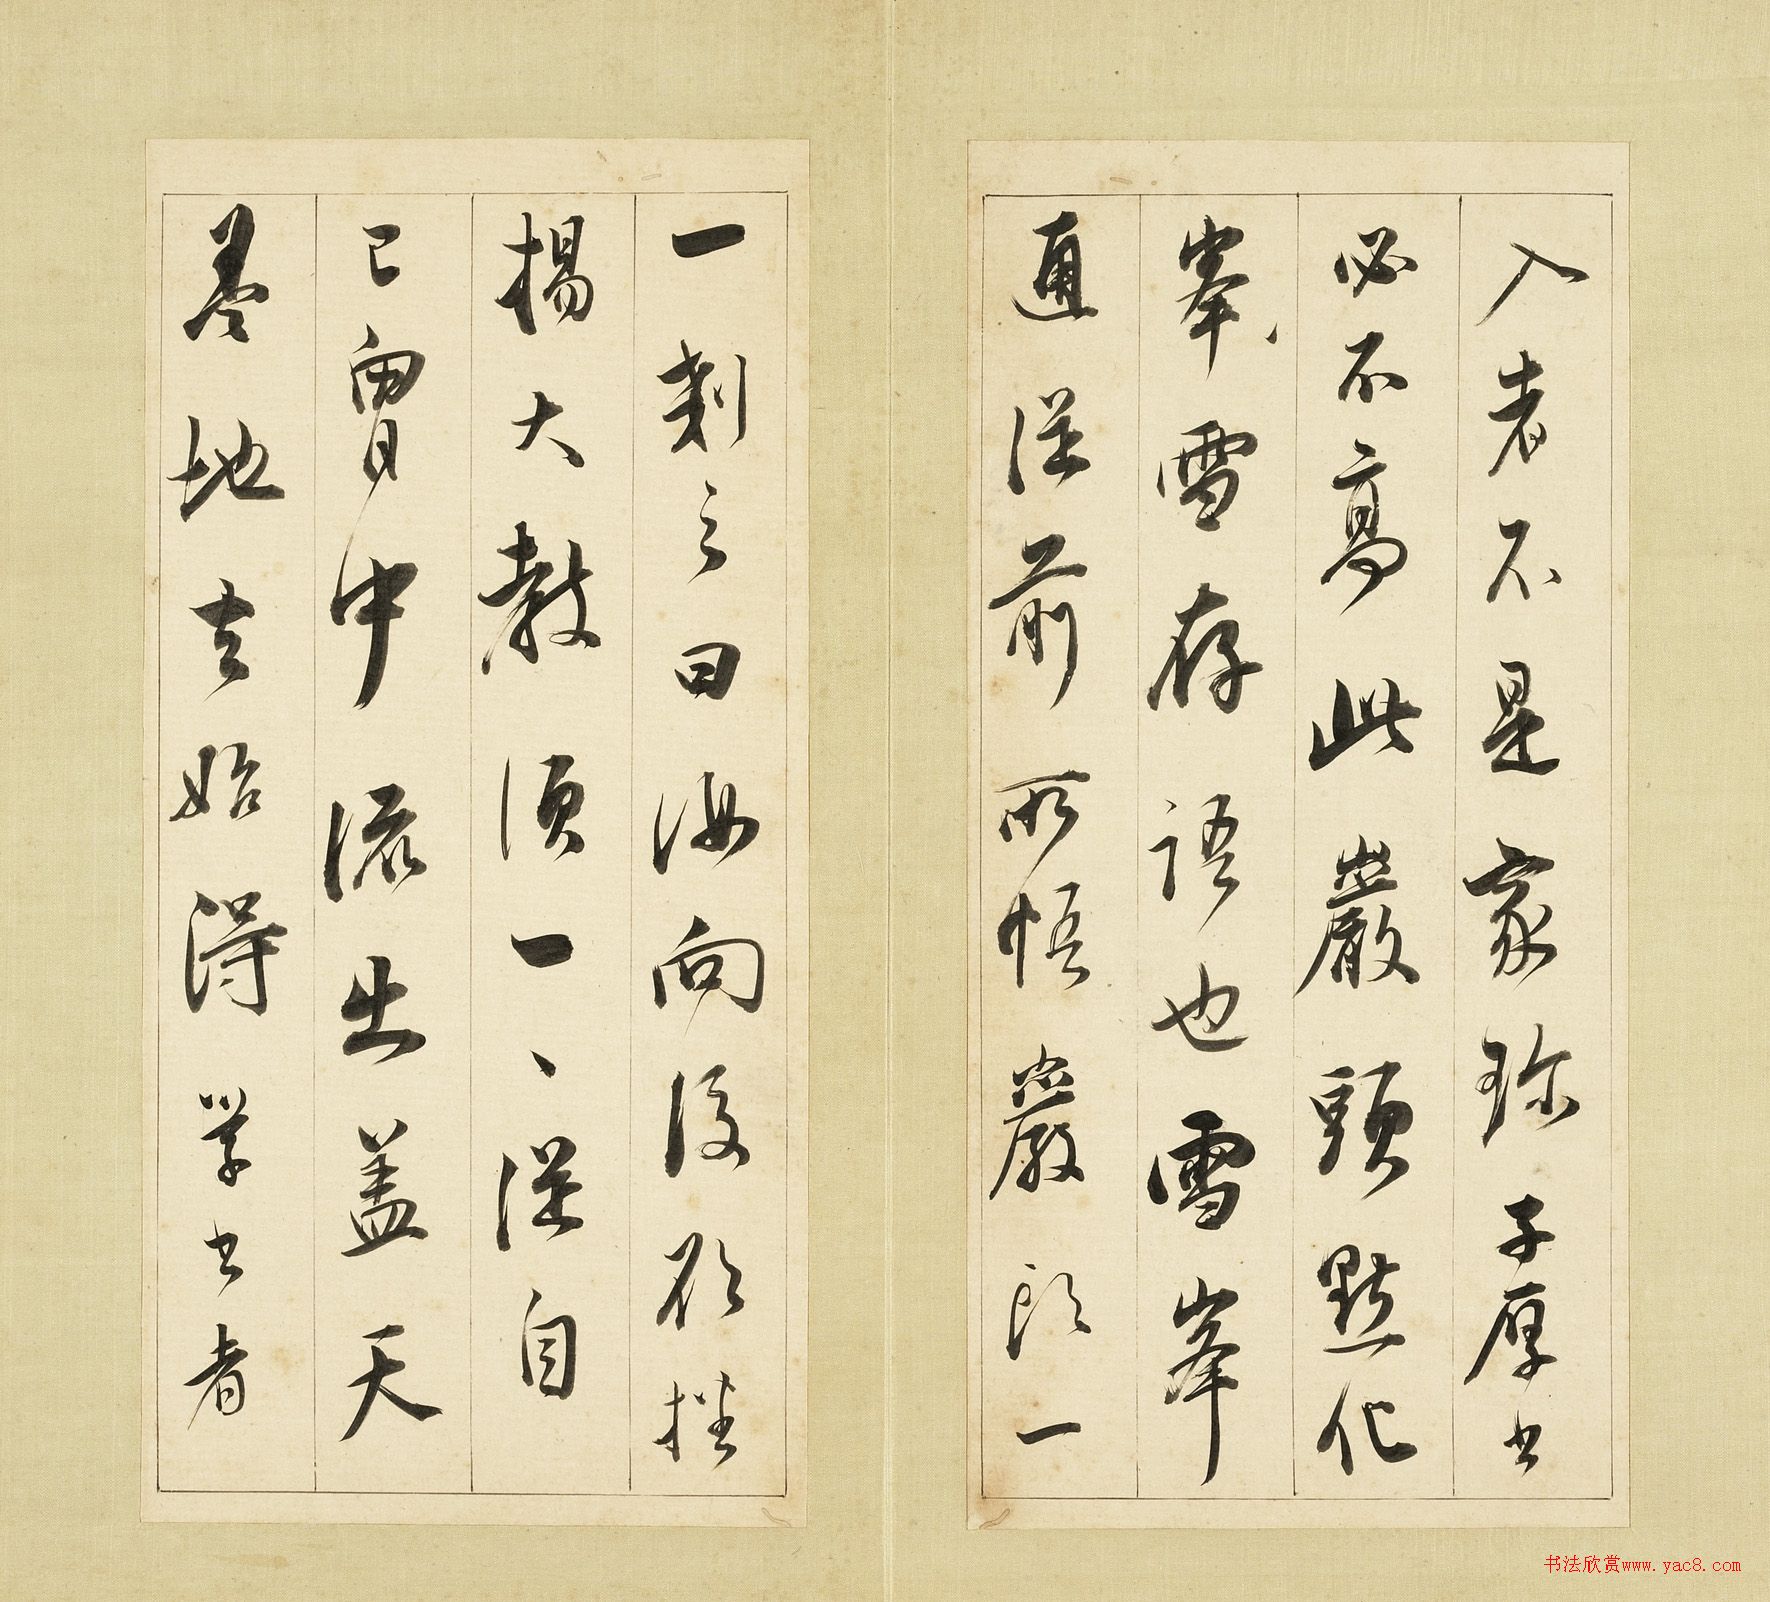 入者不是家珍子厚书
必不高此巖頭點化
峯雪存語也雪峯
通從前所悟巖頭一
一剗之曰汝向後欲播
揚大教須一、從自
己胷中流出蓋天
蓋地去始得學书者
书法欣赏www.yac8.com